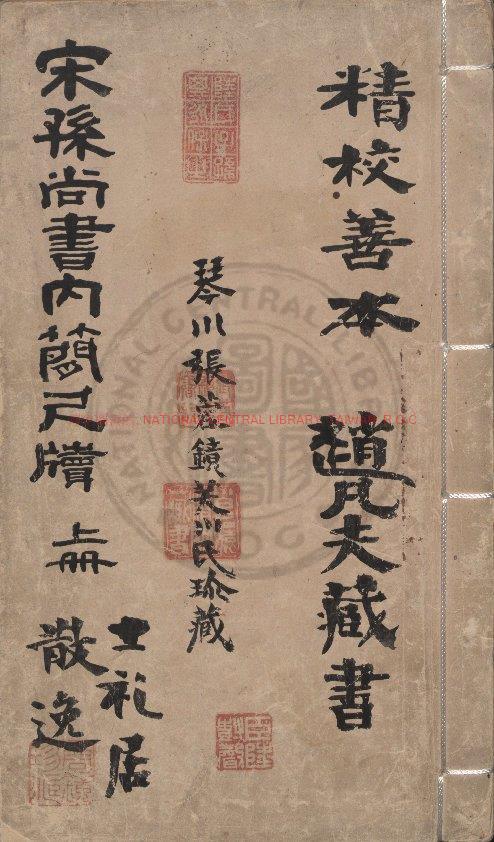 精校善本 趙凡夫藏書
琴川張蓉鏡芙川氏珍藏
宋孫尚書內簡尺牘 上冊
士礼居
散逸
NATIONAL CENTRAL LIBRARY, TAIWAN, R.O.C